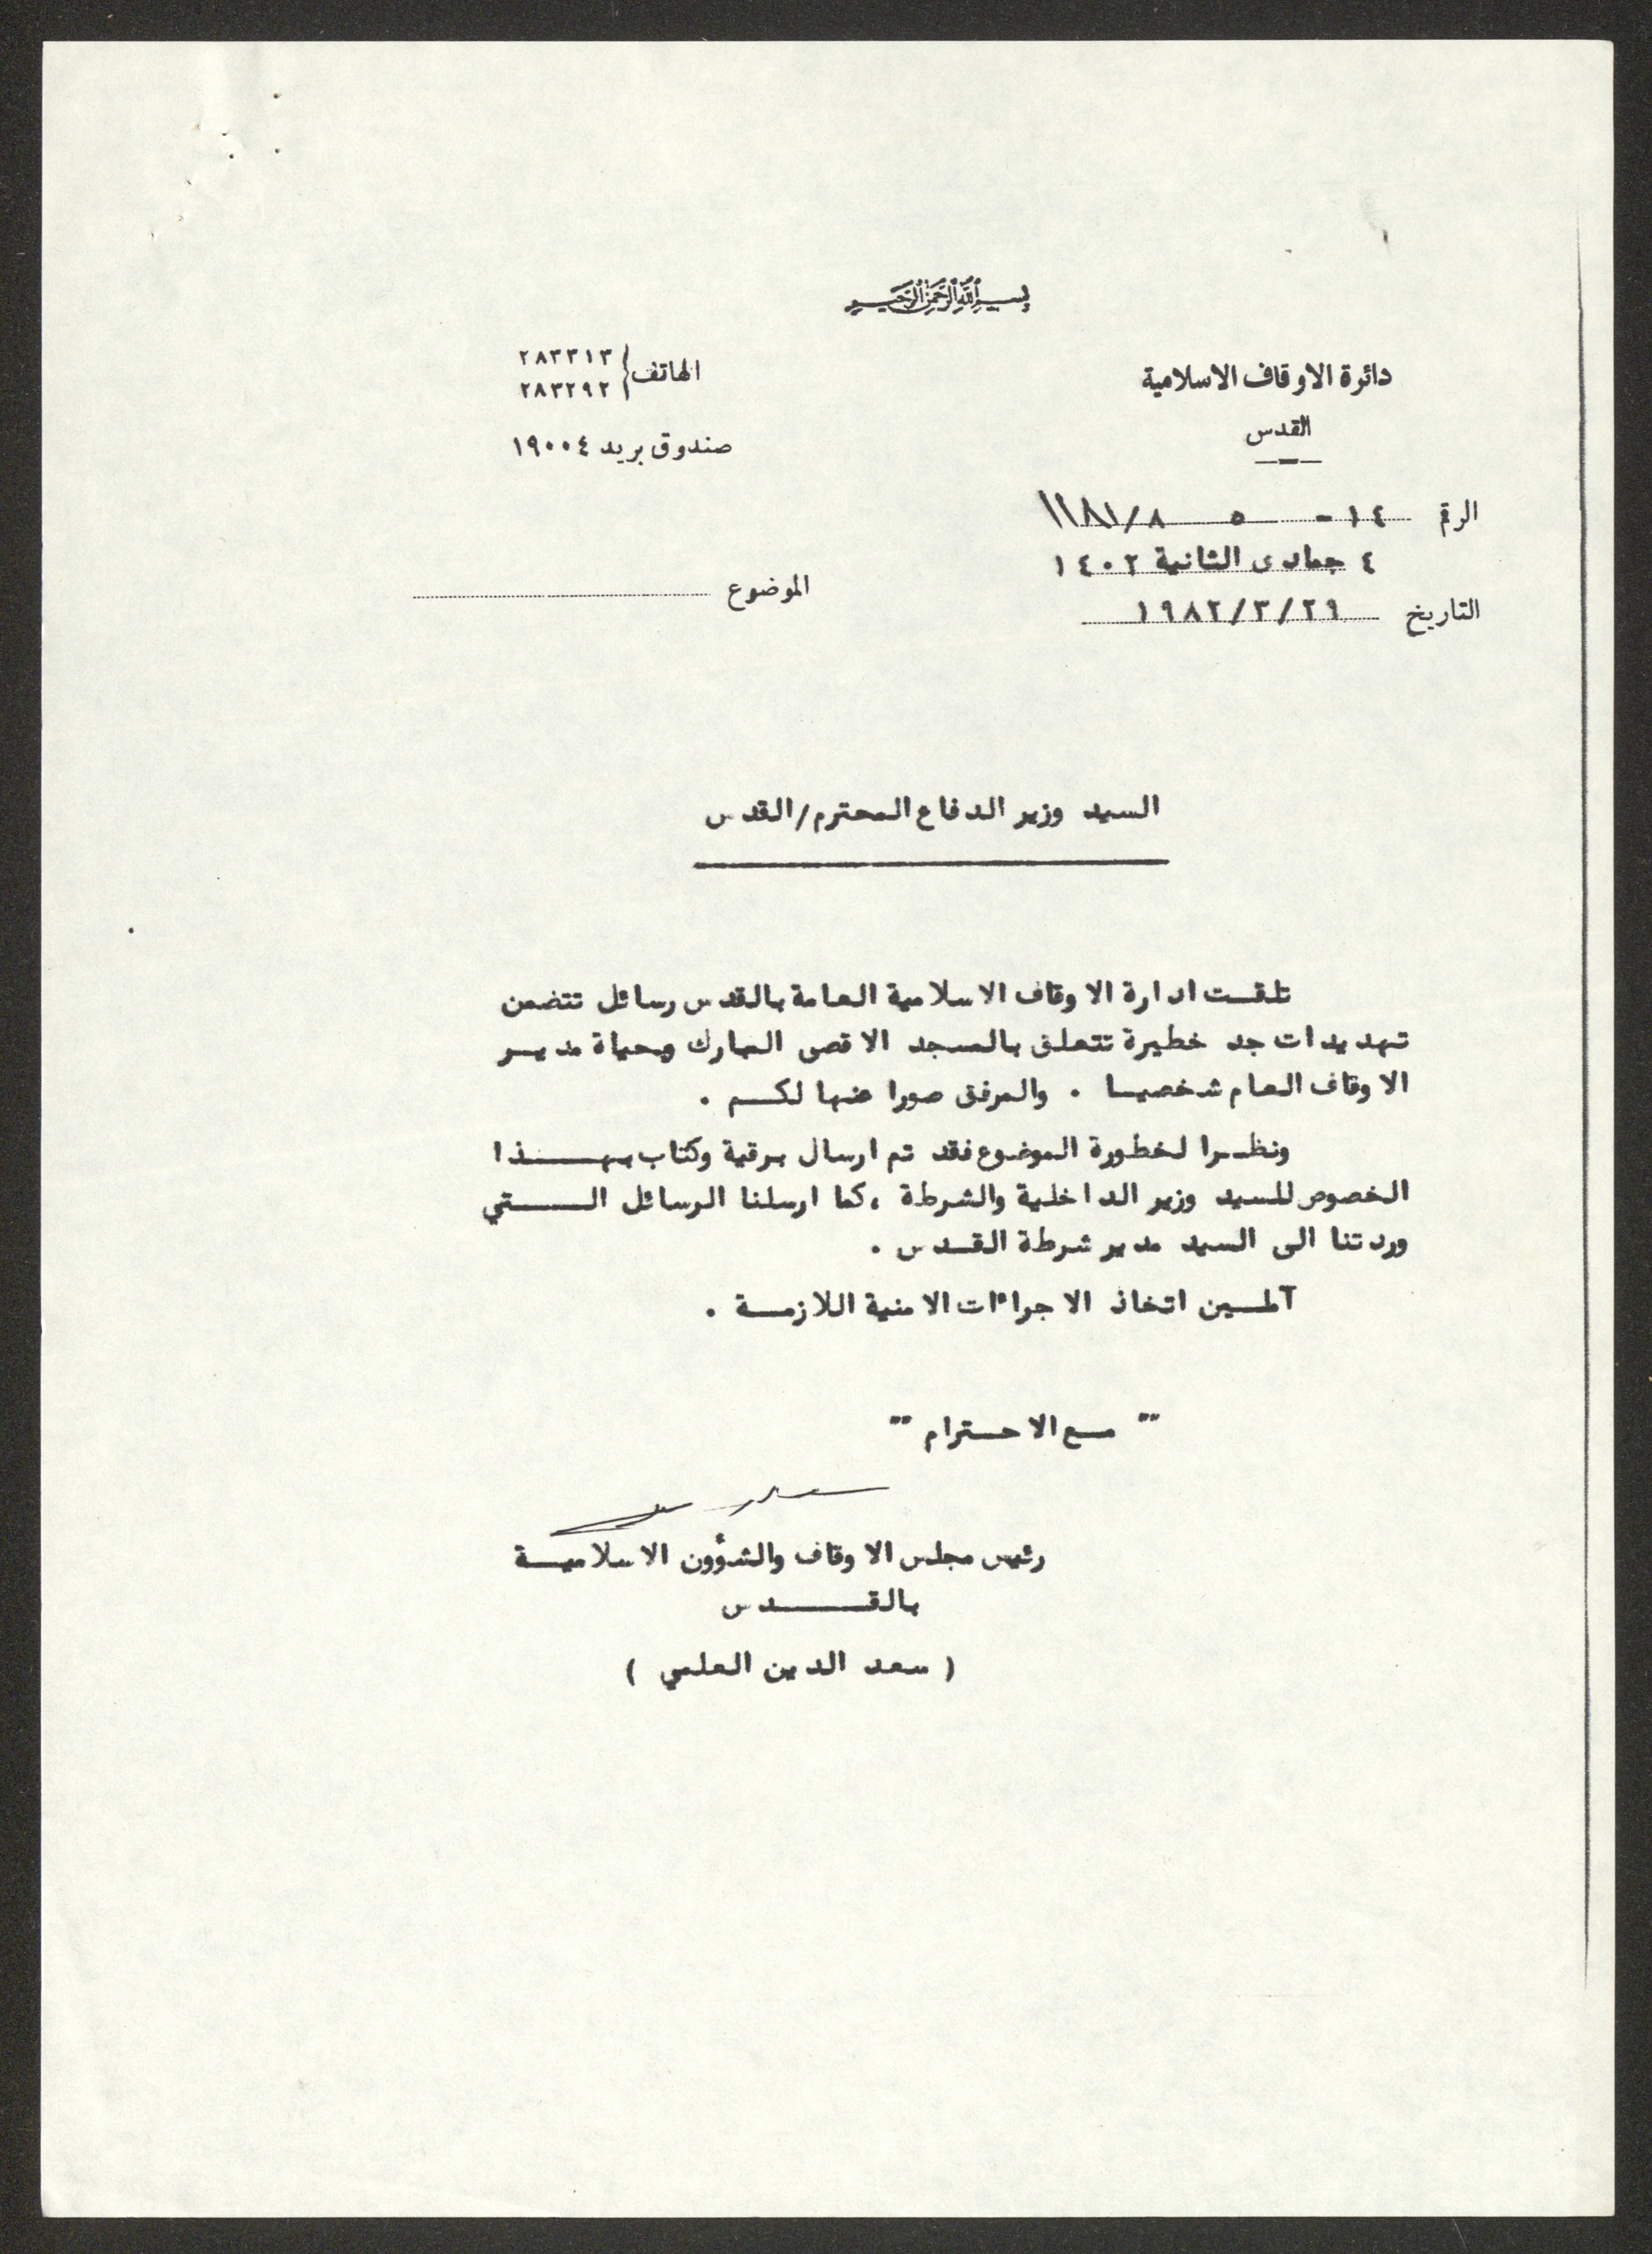 بسم الله الرحمن الرحيم
دائرة الاوقاف الاسلامية
القدس
الهاتف { ٢٨٣٣١٣
٢٨٣٢٩٢
صندوق بريد ١٩٠٠٤
الرقم ١٤ - ٥ ٨/
٤ جمادى الثانية ١٤٠٢
التاريخ ١٩٨٢/٣/٢٩
الموضوع
السيد وزير الدفاع المحترم/القدس
تلقـت ادارة الاوقاف الاسلامية العامة بالقدس رسائل تتضمن
تهديدات جد خطيرة تتعلق بالمسجد الاقصى المبارك وبحياة مديـر
الاوقاف العام شخصيـا . والمرفق صورا عنها لكـم .
ونظـرا لخطورة الموضوع فقد تم ارسال برقية وكتاب بهــذا
الخصوص للسيد وزير الداخلية والشرطة ، كما ارسلنا الرسائل الــتي
وردتنا الى السيد مدير شرطة القـدس .
آملـين اتخاذ الاجراءات الامنية اللازمـة .
" مـع الاحـترام "
رئيس مجلس الاوقاف والشؤون الاسلاميـة
بالقــدس
( سعد الدين العلمي )